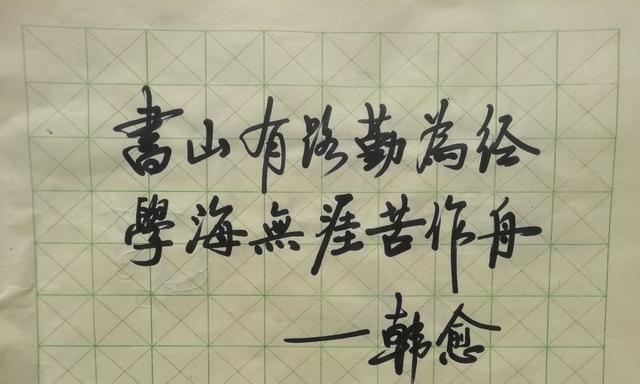 書山有路勤為经
學海無涯苦作舟
—韩愈